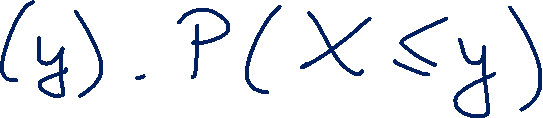 (y). P(X ≤ y)